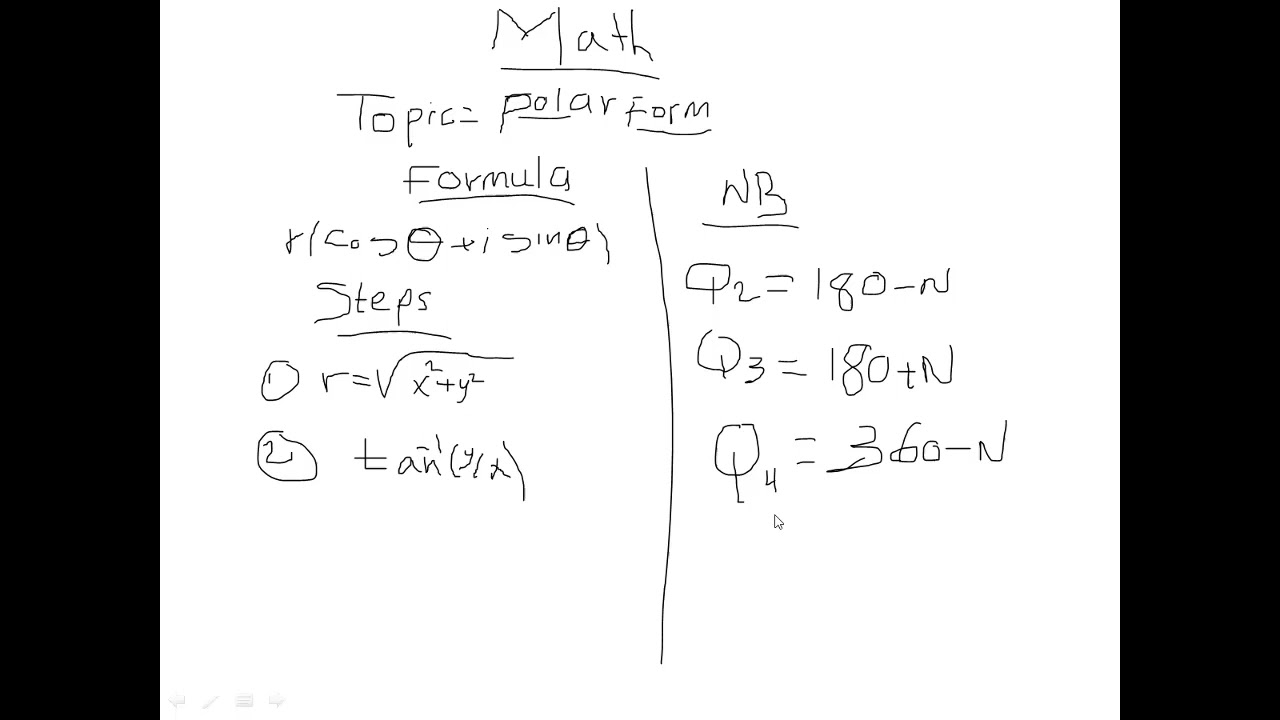 Math
Topic= Polar Form
Formula
r(cosθ+i sinθ)
Steps
① r=√x²+y²
② tan⁻¹(y/x)
NB
Q2=180-N
Q3=180+N
Q4=360-N